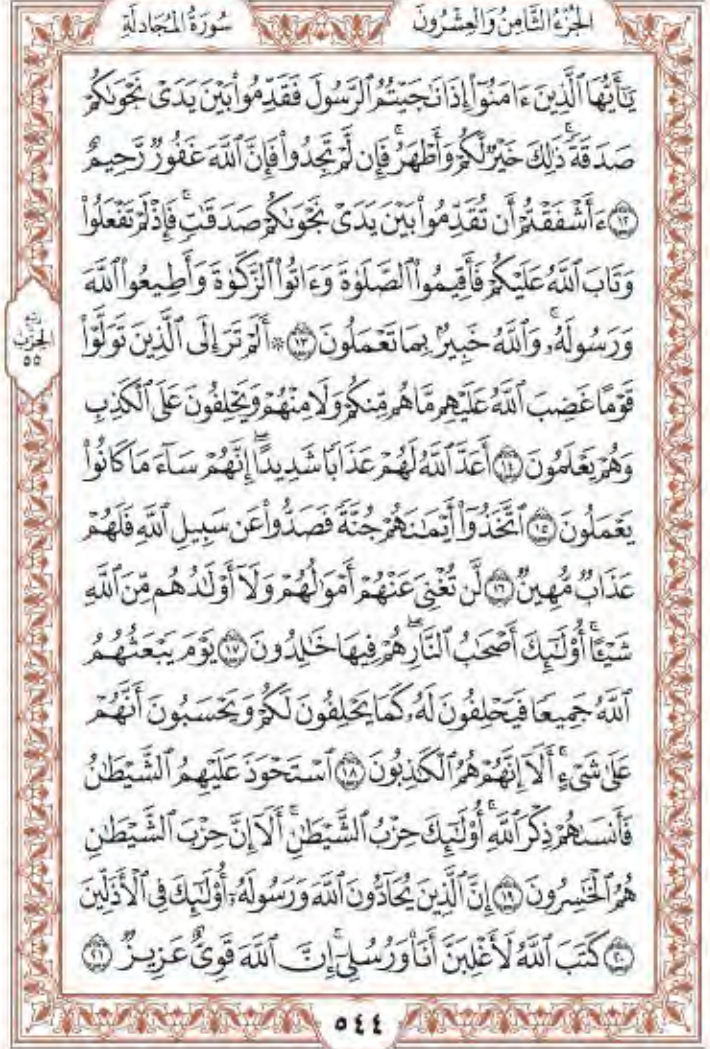 الجُزْءُ الثَّامِنُ وَالعِشْرُونَ
سُورَةُ المُجَادلَةِ
يَٰٓأَيُّهَا ٱلَّذِينَ ءَامَنُوٓاْ إِذَا نَٰجَيْتُمُ ٱلرَّسُولَ فَقَدِّمُواْ بَيْنَ يَدَىْ نَجْوَىٰكُمْ
صَدَقَةً ۚ ذَٰلِكَ خَيْرٌ لَّكُمْ وَأَطْهَرُ ۚ فَإِن لَّمْ تَجِدُواْ فَإِنَّ ٱللَّهَ غَفُورٌ رَّحِيمٌ
١٢ ءَأَشْفَقْتُمْ أَن تُقَدِّمُواْ بَيْنَ يَدَىْ نَجْوَىٰكُمْ صَدَقَٰتٍ ۚ فَإِذْ لَمْ تَفْعَلُواْ
وَتَابَ ٱللَّهُ عَلَيْكُمْ فَأَقِيمُواْ ٱلصَّلَوٰةَ وَءَاتُواْ ٱلزَّكَوٰةَ وَأَطِيعُواْ ٱللَّهَ
وَرَسُولَهُۥ ۚ وَٱللَّهُ خَبِيرٌۢ بِمَا تَعْمَلُونَ ١٣ ۞ أَلَمْ تَرَ إِلَى ٱلَّذِينَ تَوَلَّوْاْ
رُبْع
الحِزْب
٥٥
قَوْمًا غَضِبَ ٱللَّهُ عَلَيْهِم مَّا هُم مِّنكُمْ وَلَا مِنْهُمْ وَيَحْلِفُونَ عَلَى ٱلْكَذِبِ
وَهُمْ يَعْلَمُونَ ١٤ أَعَدَّ ٱللَّهُ لَهُمْ عَذَابًا شَدِيدًا ۖ إِنَّهُمْ سَآءَ مَا كَانُواْ
يَعْمَلُونَ ١٥ ٱتَّخَذُوٓاْ أَيْمَٰنَهُمْ جُنَّةً فَصَدُّواْ عَن سَبِيلِ ٱللَّهِ فَلَهُمْ
عَذَابٌ مُّهِينٌ ١٦ لَّن تُغْنِىَ عَنْهُمْ أَمْوَٰلُهُمْ وَلَآ أَوْلَٰدُهُم مِّنَ ٱللَّهِ
شَيْـًٔا ۚ أُوْلَٰٓئِكَ أَصْحَٰبُ ٱلنَّارِ ۖ هُمْ فِيهَا خَٰلِدُونَ ١٧ يَوْمَ يَبْعَثُهُمُ
ٱللَّهُ جَمِيعًا فَيَحْلِفُونَ لَهُۥ كَمَا يَحْلِفُونَ لَكُمْ وَيَحْسَبُونَ أَنَّهُمْ
عَلَىٰ شَىْءٍ ۚ أَلَآ إِنَّهُمْ هُمُ ٱلْكَٰذِبُونَ ١٨ ٱسْتَحْوَذَ عَلَيْهِمُ ٱلشَّيْطَٰنُ
فَأَنسَىٰهُمْ ذِكْرَ ٱللَّهِ ۚ أُوْلَٰٓئِكَ حِزْبُ ٱلشَّيْطَٰنِ ۚ أَلَآ إِنَّ حِزْبَ ٱلشَّيْطَٰنِ
هُمُ ٱلْخَٰسِرُونَ ١٩ إِنَّ ٱلَّذِينَ يُحَآدُّونَ ٱللَّهَ وَرَسُولَهُۥٓ أُوْلَٰٓئِكَ فِى ٱلْأَذَلِّينَ
٢٠ كَتَبَ ٱللَّهُ لَأَغْلِبَنَّ أَنَا۠ وَرُسُلِىٓ ۚ إِنَّ ٱللَّهَ قَوِىٌّ عَزِيزٌ ٢١
٥٤٤